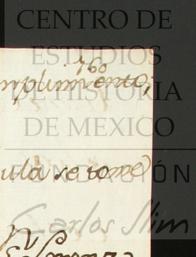 CENTRO DE
ESTUDIOS
1760
mplimiento,
DE HISTORIA
DE MEXICO
ula se tome
FUNDACIÓN
Carlos Slim